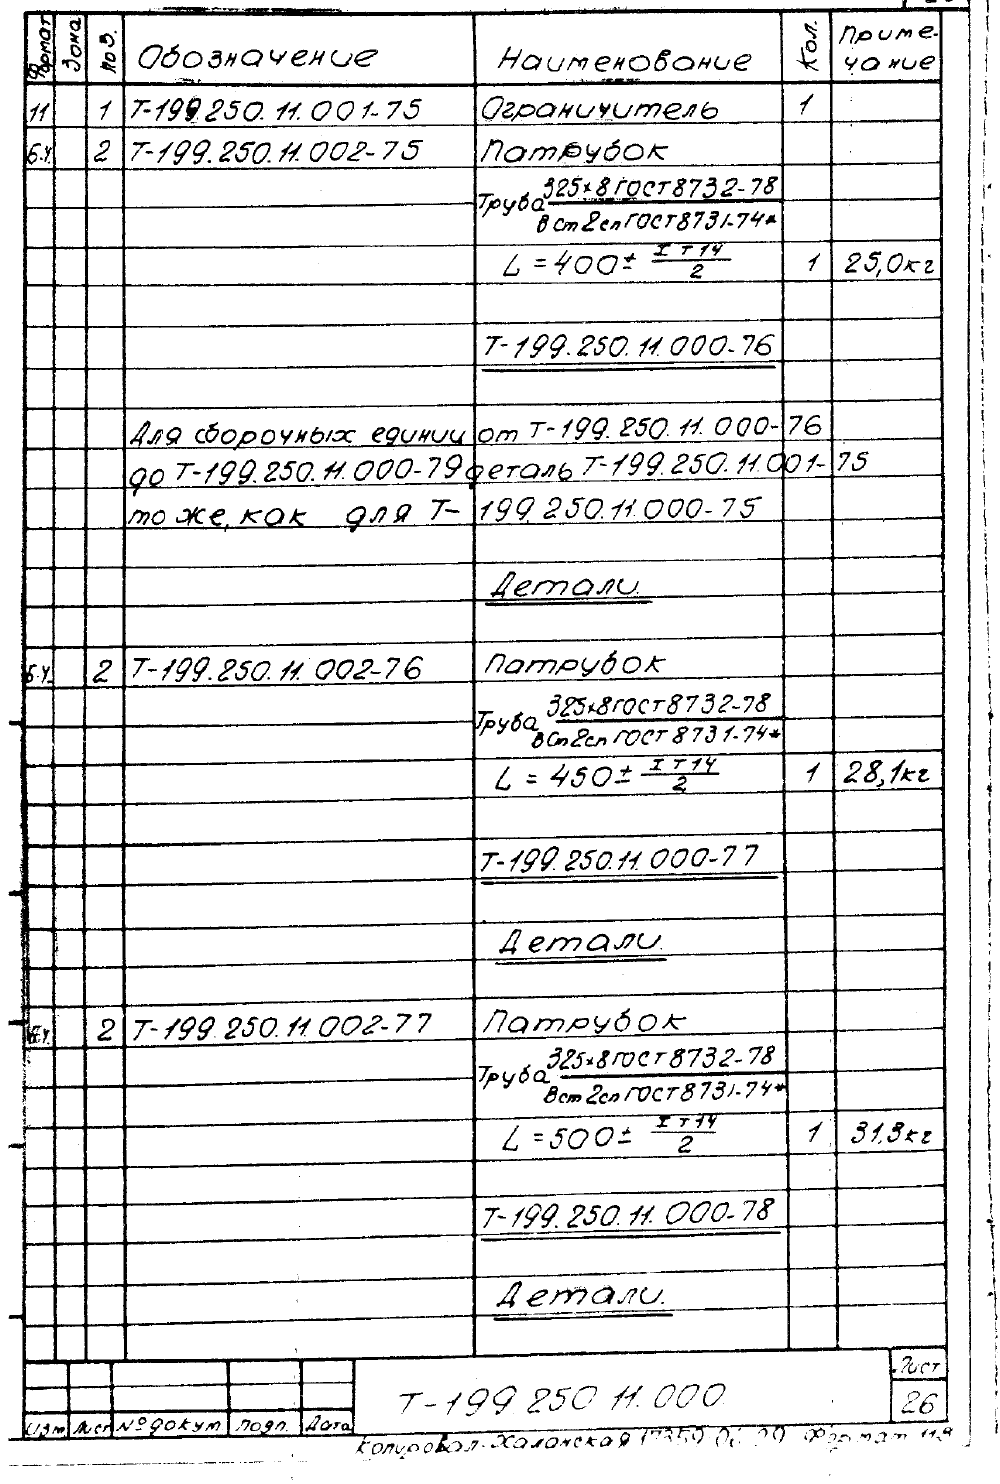 Формат Зона Поз. Обозначение Наименование Кол. Приме-
чание
11 1 Т-199.250.11.001-75 Ограничитель 1
Б.Ч. 2 Т-199.250.11.002-75 Патрубок
Труба 325×8 ГОСТ 8732-78
В Ст2сп ГОСТ 8731-74*
L = 400 ± IT14/2 1 25,0кг
Т-199.250.11.000-76
Для сборочных единиц от Т-199.250.11.000-76
до Т-199.250.11.000-79 деталь Т-199.250.11.001-75
то же, как для Т-199.250.11.000-75
Детали.
Б.Ч. 2 Т-199.250.11.002-76 Патрубок
Труба 325×8 ГОСТ 8732-78
В Ст2сп ГОСТ 8731-74*
L = 450 ± IT14/2 1 28,1кг
Т-199.250.11.000-77
Детали.
Б.Ч. 2 Т-199.250.11.002-77 Патрубок
Труба 325×8 ГОСТ 8732-78
В Ст2сп ГОСТ 8731-74*
L = 500 ± IT14/2 1 31,3кг
Т-199.250.11.000-78
Детали.
Т-199 250 11.000
Лист
26
Изм Лист № докум подп. Дата
Копировал-Халанская Формат 11